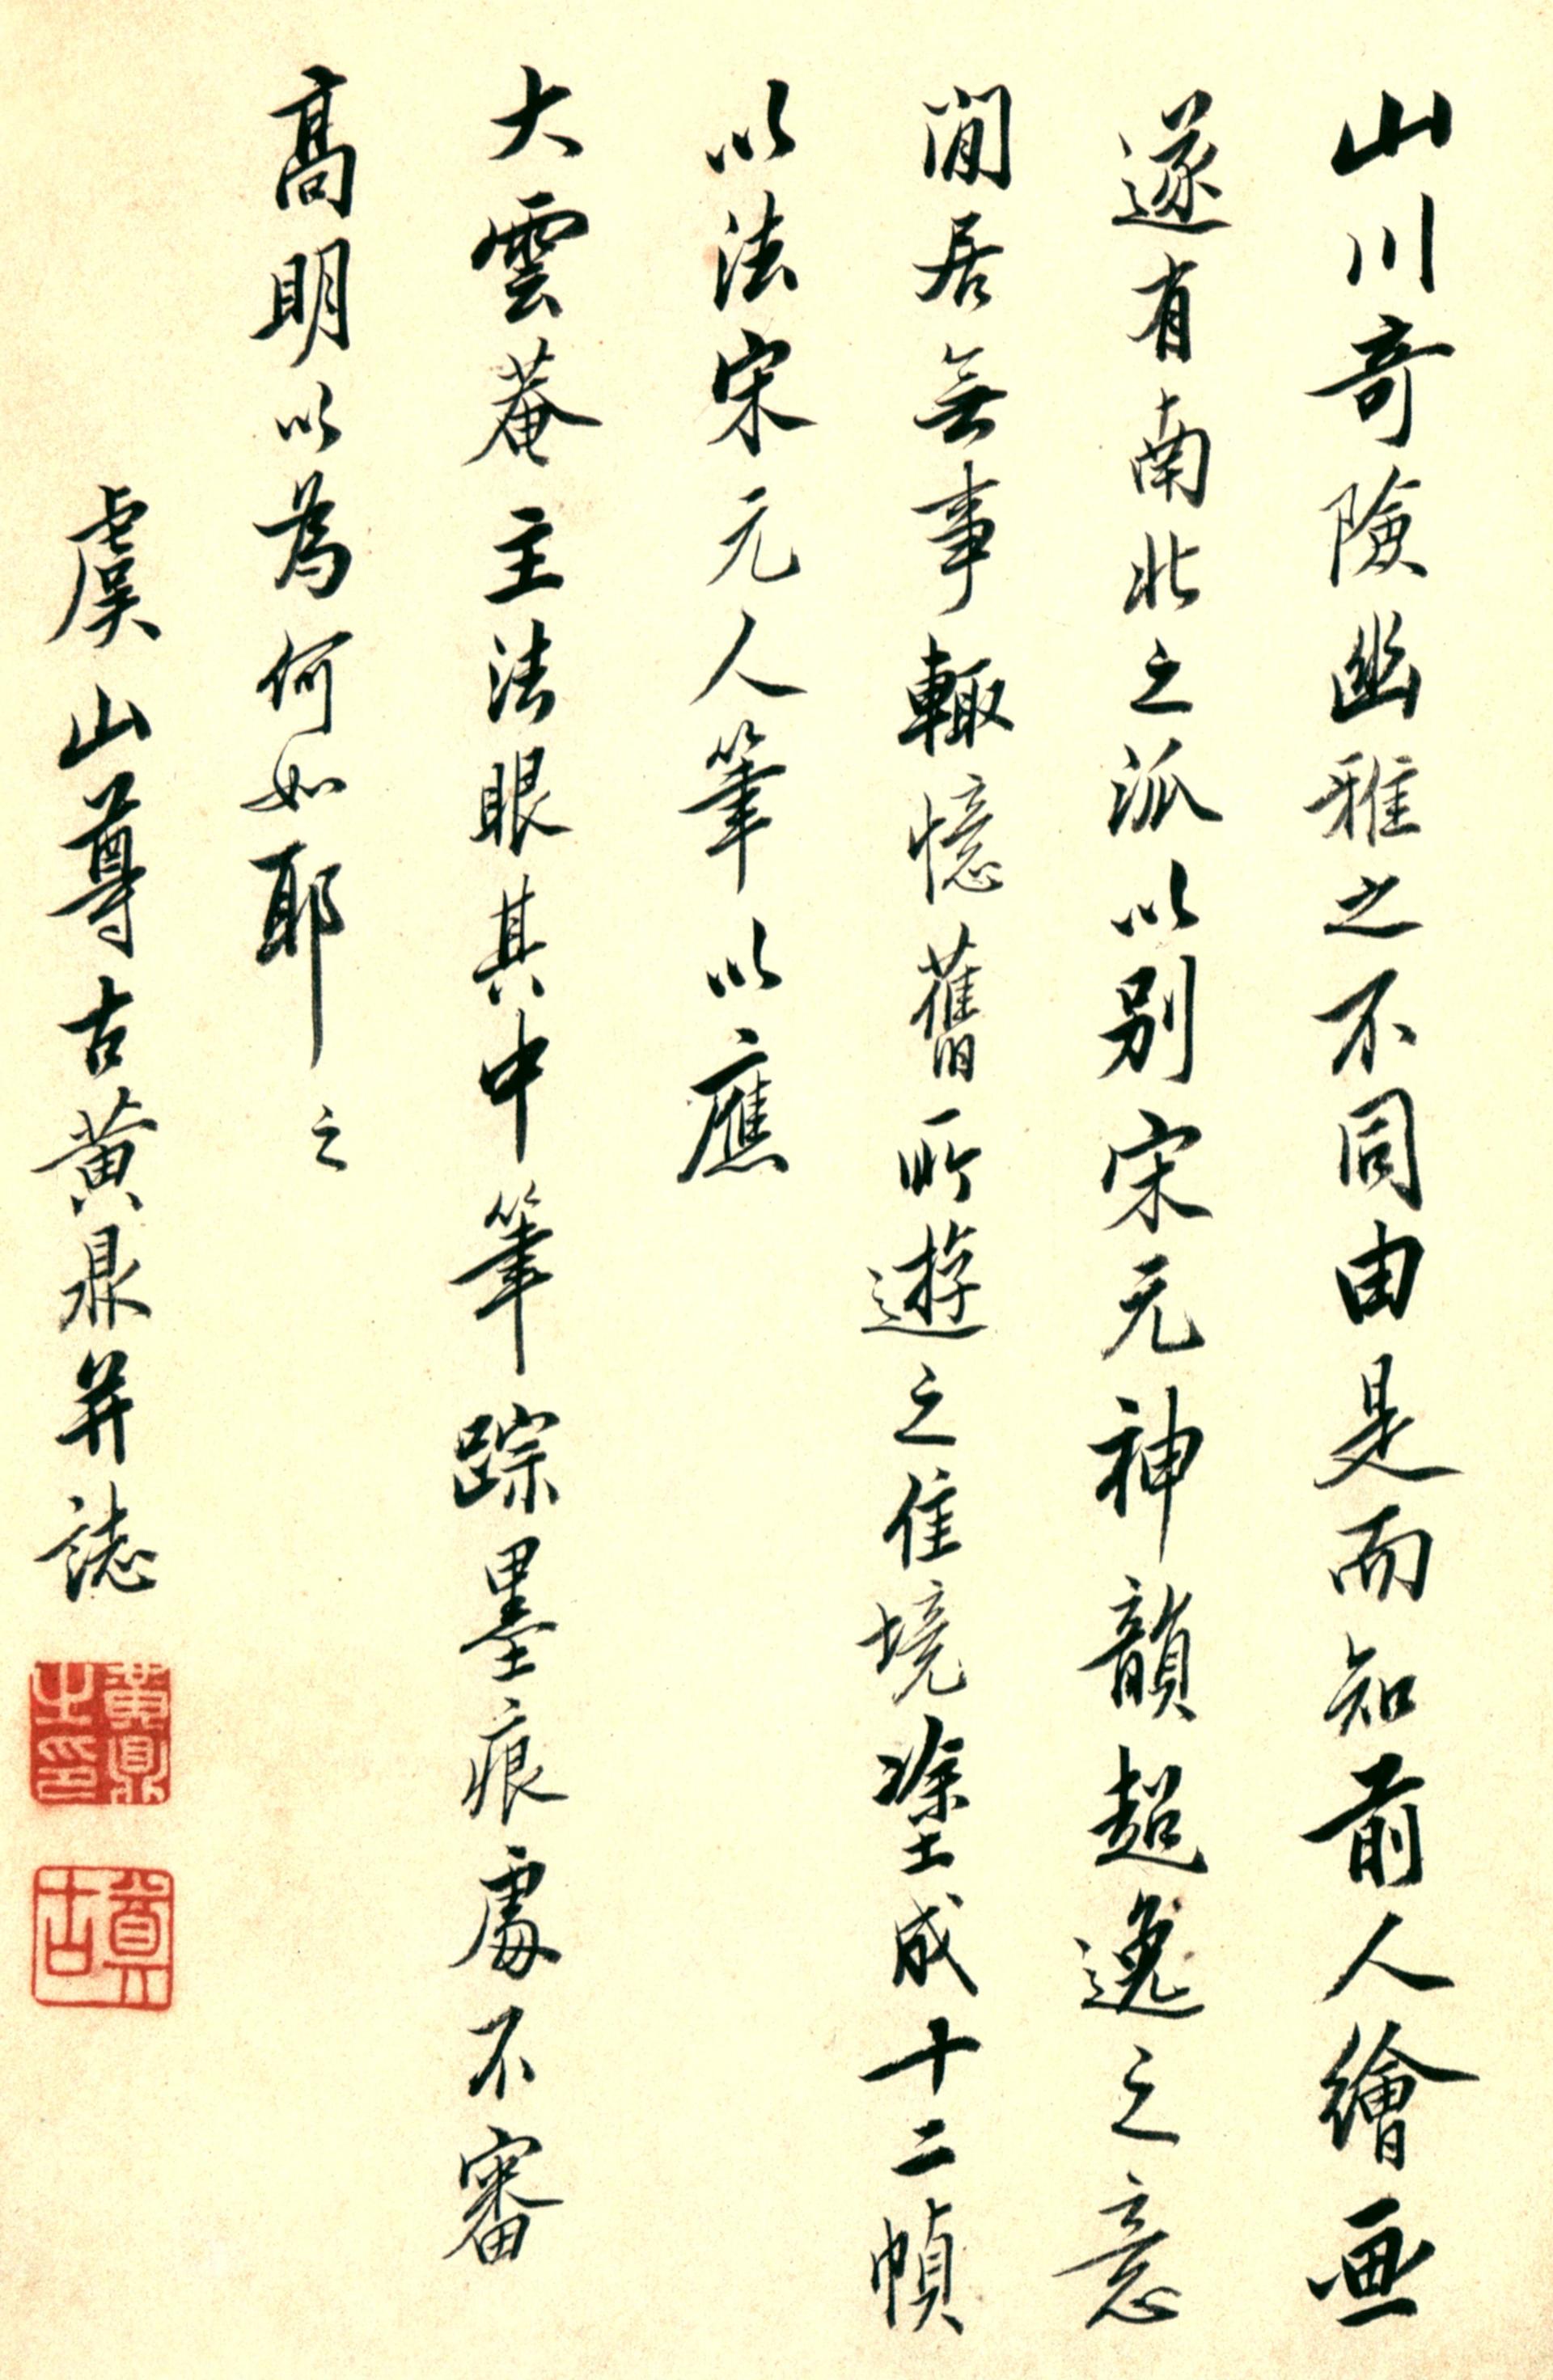 山川奇險幽雅之不同由是而知前人繪畫
遂有南北之派以别宋元神韻超逸之意
閒居無事輙憶舊所遊之佳境塗成十二幀
以法宋元人筆以應
大雲菴主法眼其中筆踪墨痕處不審
高明以為何如耶之
虞山尊古黄鼎并誌
黃鼎之印
尊古